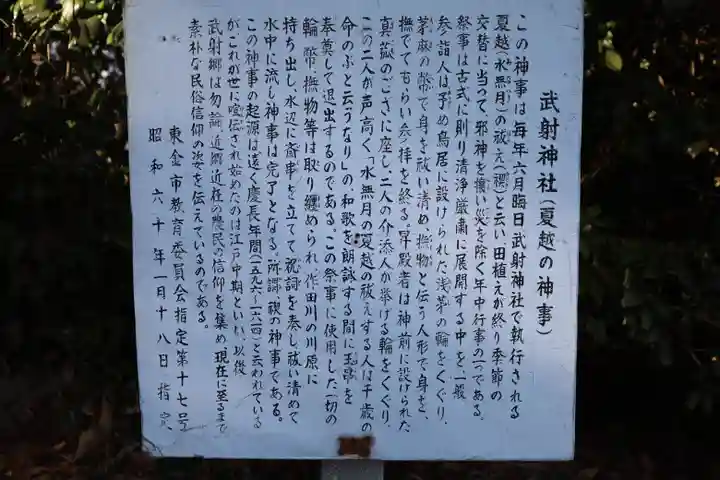 武射神社(夏越の神事)
この神事は毎年六月晦日武射神社で執行される
夏越(水無月)の祓え(禊)と云い田植えが終り季節の
交替に当って邪神を攘い災を除く年中行事の一つである。
祭事は古式に則り清浄厳粛に展開する中を、一般
参詣人は予め鳥居に設けられた浅茅の輪をくぐり、
茅麻の幣で身を祓い清め、撫物と伝う人形で身を、
撫でてもらい参拝を終る。昇殿者は神前に設けられた
真菰のござに座し、二人の介添人が挙げる輪をくぐり、
この二人が声高く「水無月の夏越の祓えする人は千歳の
命のぶと云うなり」の和歌を朗詠する間に玉串を
奉奠して退出するのである。この祭事に使用した一切の
輪、幣、撫物等は取り纏められ、作田川の川原に
持ち出し、水辺に斎串を立てて、祝詞を奏し祓い清めて
水中に流し神事は完了となる。所謂禊の神事である。
この神事の起源は遠く慶長年間(一五九六〜一六一四)と云われている
が、これが世に喧伝され始めたのは江戸中期といい、以後
武射郷は勿論、近郷近在の農民の信仰を集め、現在に至るまで
素朴な民俗信仰の姿を伝えているのである。
東金市教育委員会指定第十七号
昭和六十年一月十八日指定